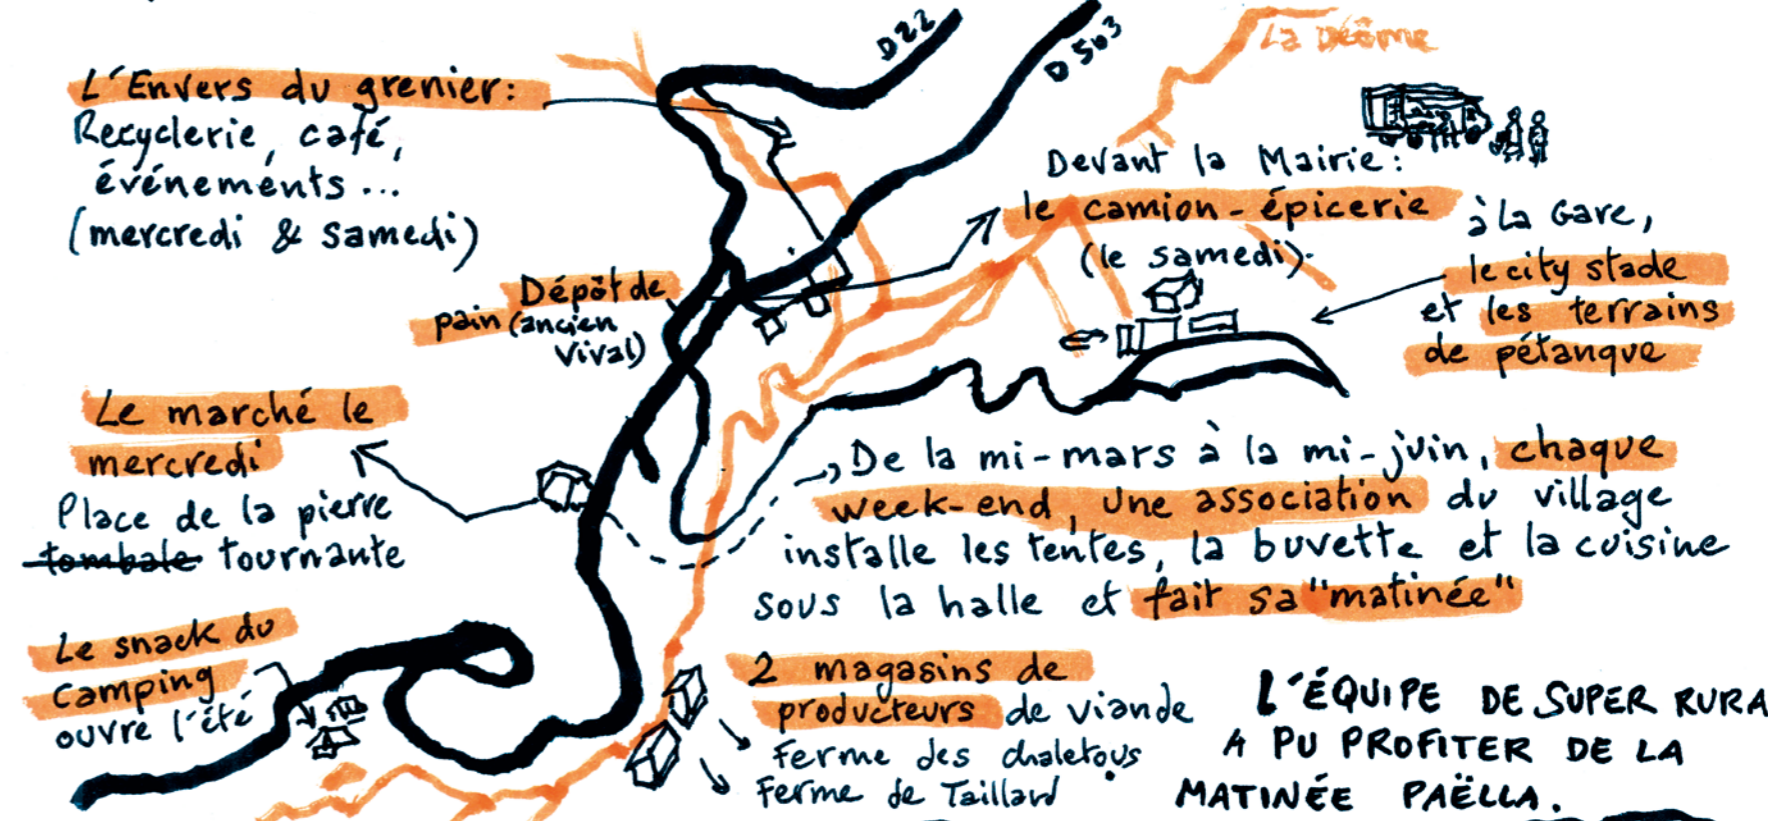 D22
D503
La Déôme
L'Envers du grenier:
Recyclerie, café,
événements...
(mercredi & samedi)
Devant la Mairie:
le camion-épicerie
(le samedi).
à La Gare,
le city stade
et les terrains
de pétanque
Dépôt de
pain (ancien
Vival)
Le marché le
mercredi
Place de la pierre
tombale tournante
De la mi-mars à la mi-juin, chaque
week-end, une association du village
installe les tentes, la buvette et la cuisine
sous la halle et fait sa "matinée"
Le snack du
camping
ouvre l'été
2 magasins de
producteurs de viande
Ferme des chaletous
Ferme de Taillard
L'ÉQUIPE DE SUPER RURA
A PU PROFITER DE LA
MATINÉE PAËLLA.